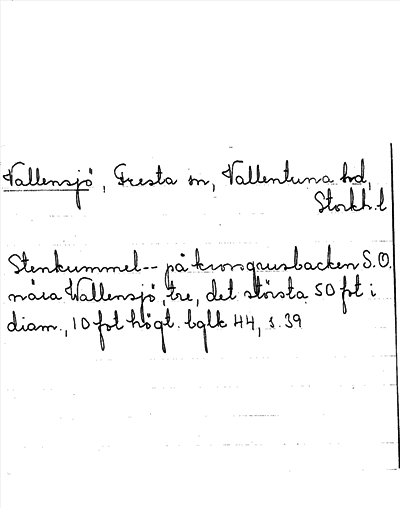 Vallensjö, Fresta sn, Vallentuna hd,
Stockh. l
Stenkummel-- på kronogrusbacken S.O.
nära Wallensjö, tre, det största 50 fot i
diam., 10 fot högt. bglk 44, s. 39